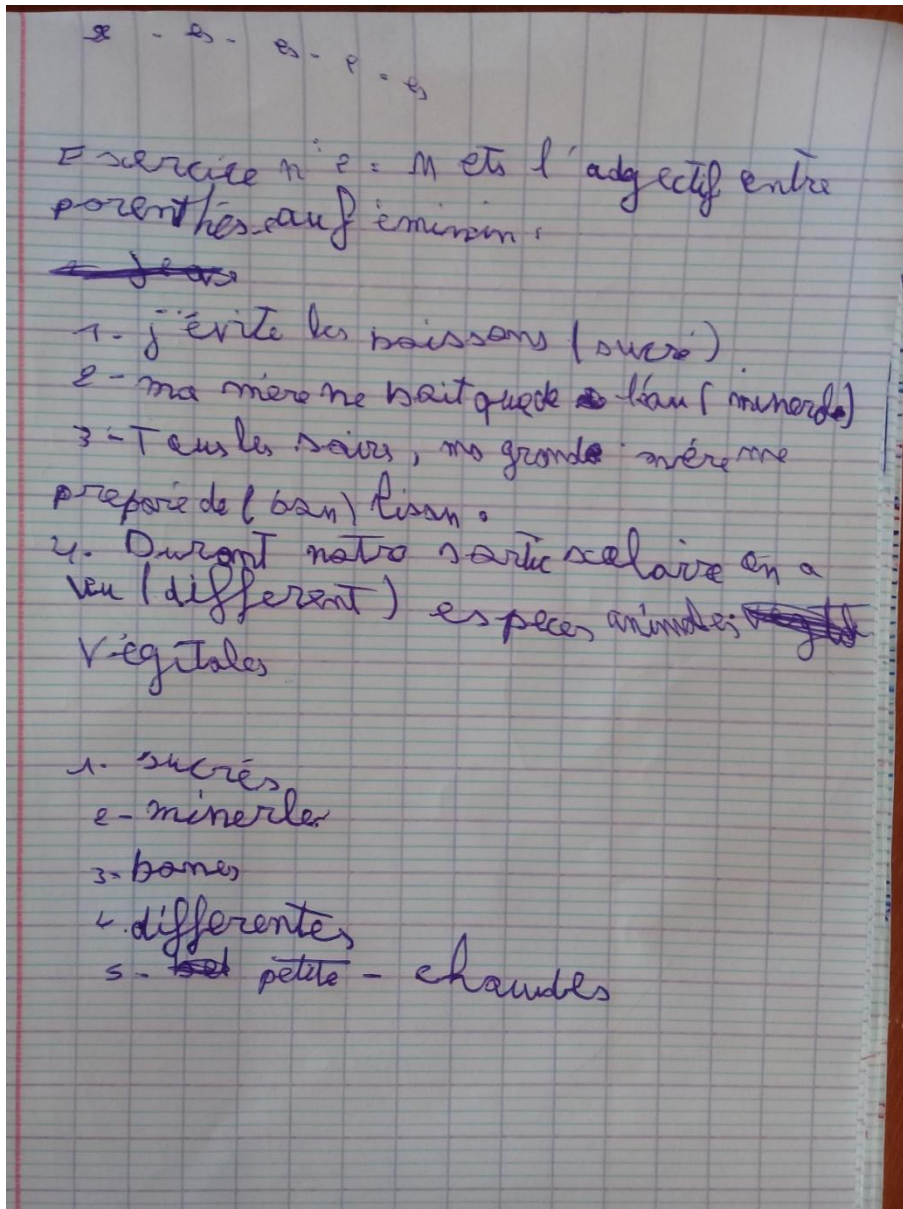 x - es - es - e - es
Exercice n°2 = Mets l'adgectif entre
porenthése au féminin.
1- j'évite les boissons (sucré)
2- ma mère ne boit que de l'eau (minerale)
3- Tous les soirs, ma grande mére me
prepare de (bon) tisan.
4. Durant notre sortie scolaire on a
vu (différent) especes animales
Végitales
1- sucrés
2- minerle
3- bones
4. différentes
5- petite - chaudes